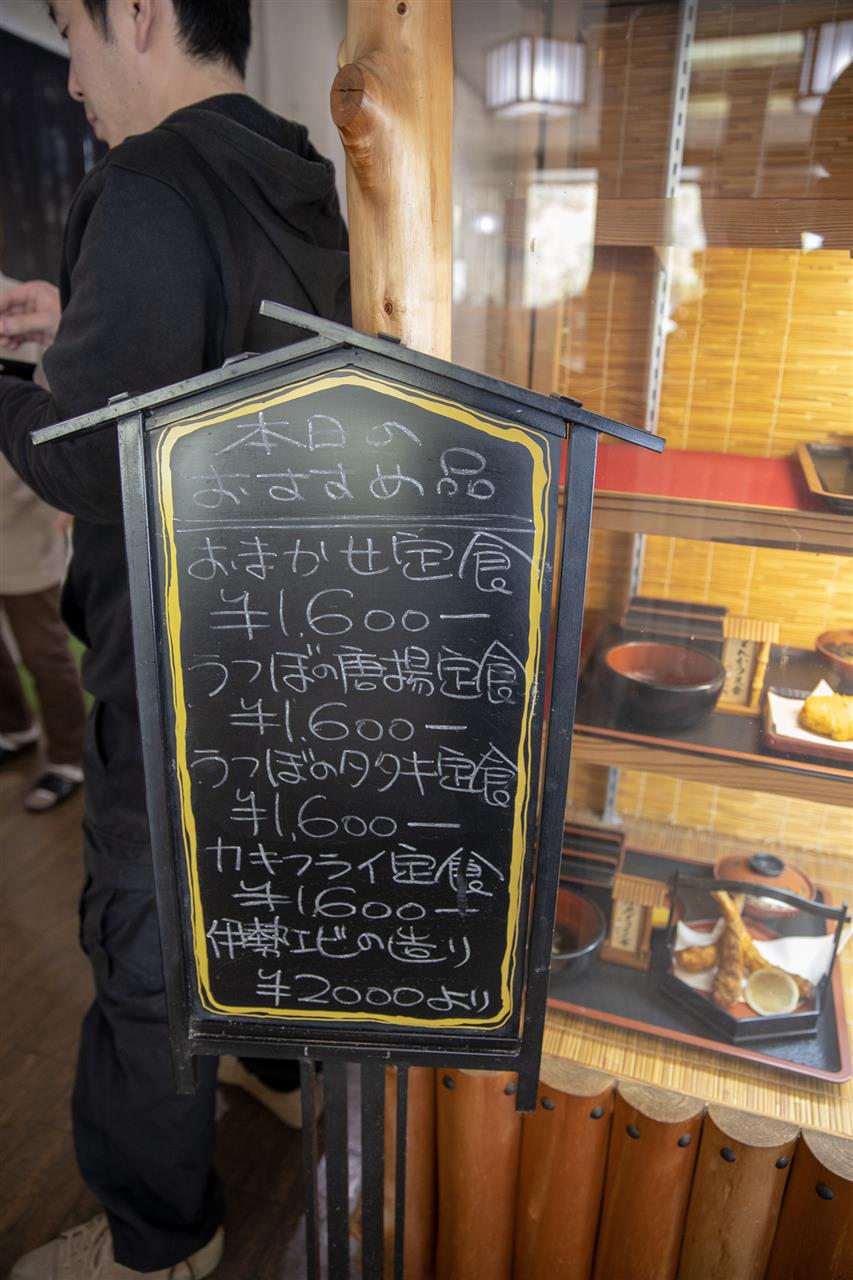 本日の
おすすめ品
おまかせ定食
¥1,600ー
うつぼの唐揚定食
¥1,600ー
うつぼのタタキ定食
¥1,600ー
カキフライ定食
¥1,600ー
伊勢エビの造り
¥2000より